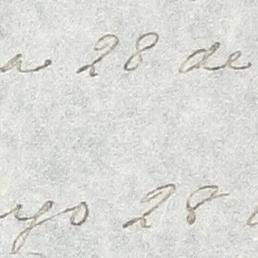 a 28 de
go 28